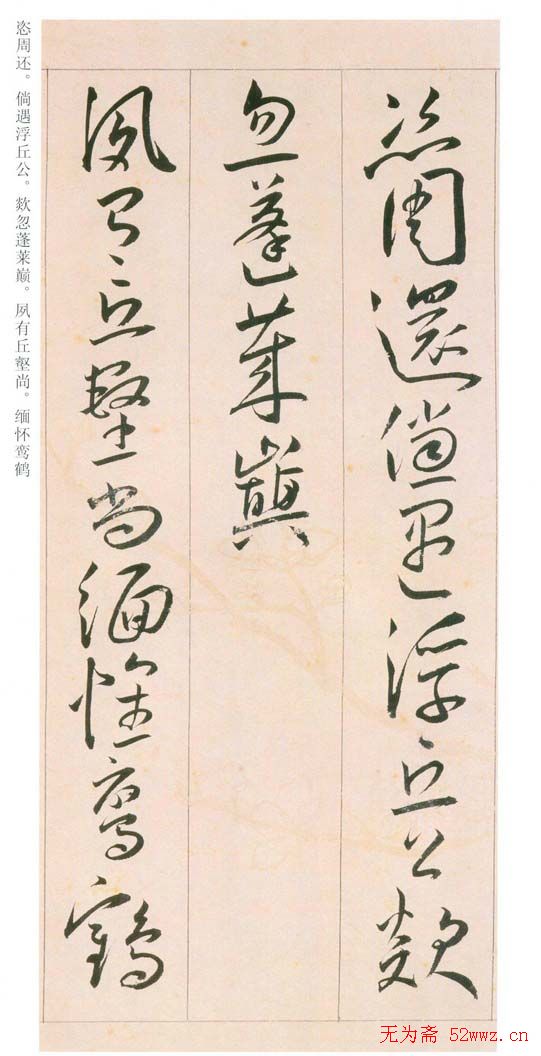 恣周還倘遇浮丘公欻
忽蓬萊巔
夙有丘壑尚緬懷鸞鶴
恣周还。倘遇浮丘公。欻忽蓬莱巅。夙有丘壑尚。缅怀鸾鹤
无为斋 52wwz.cn